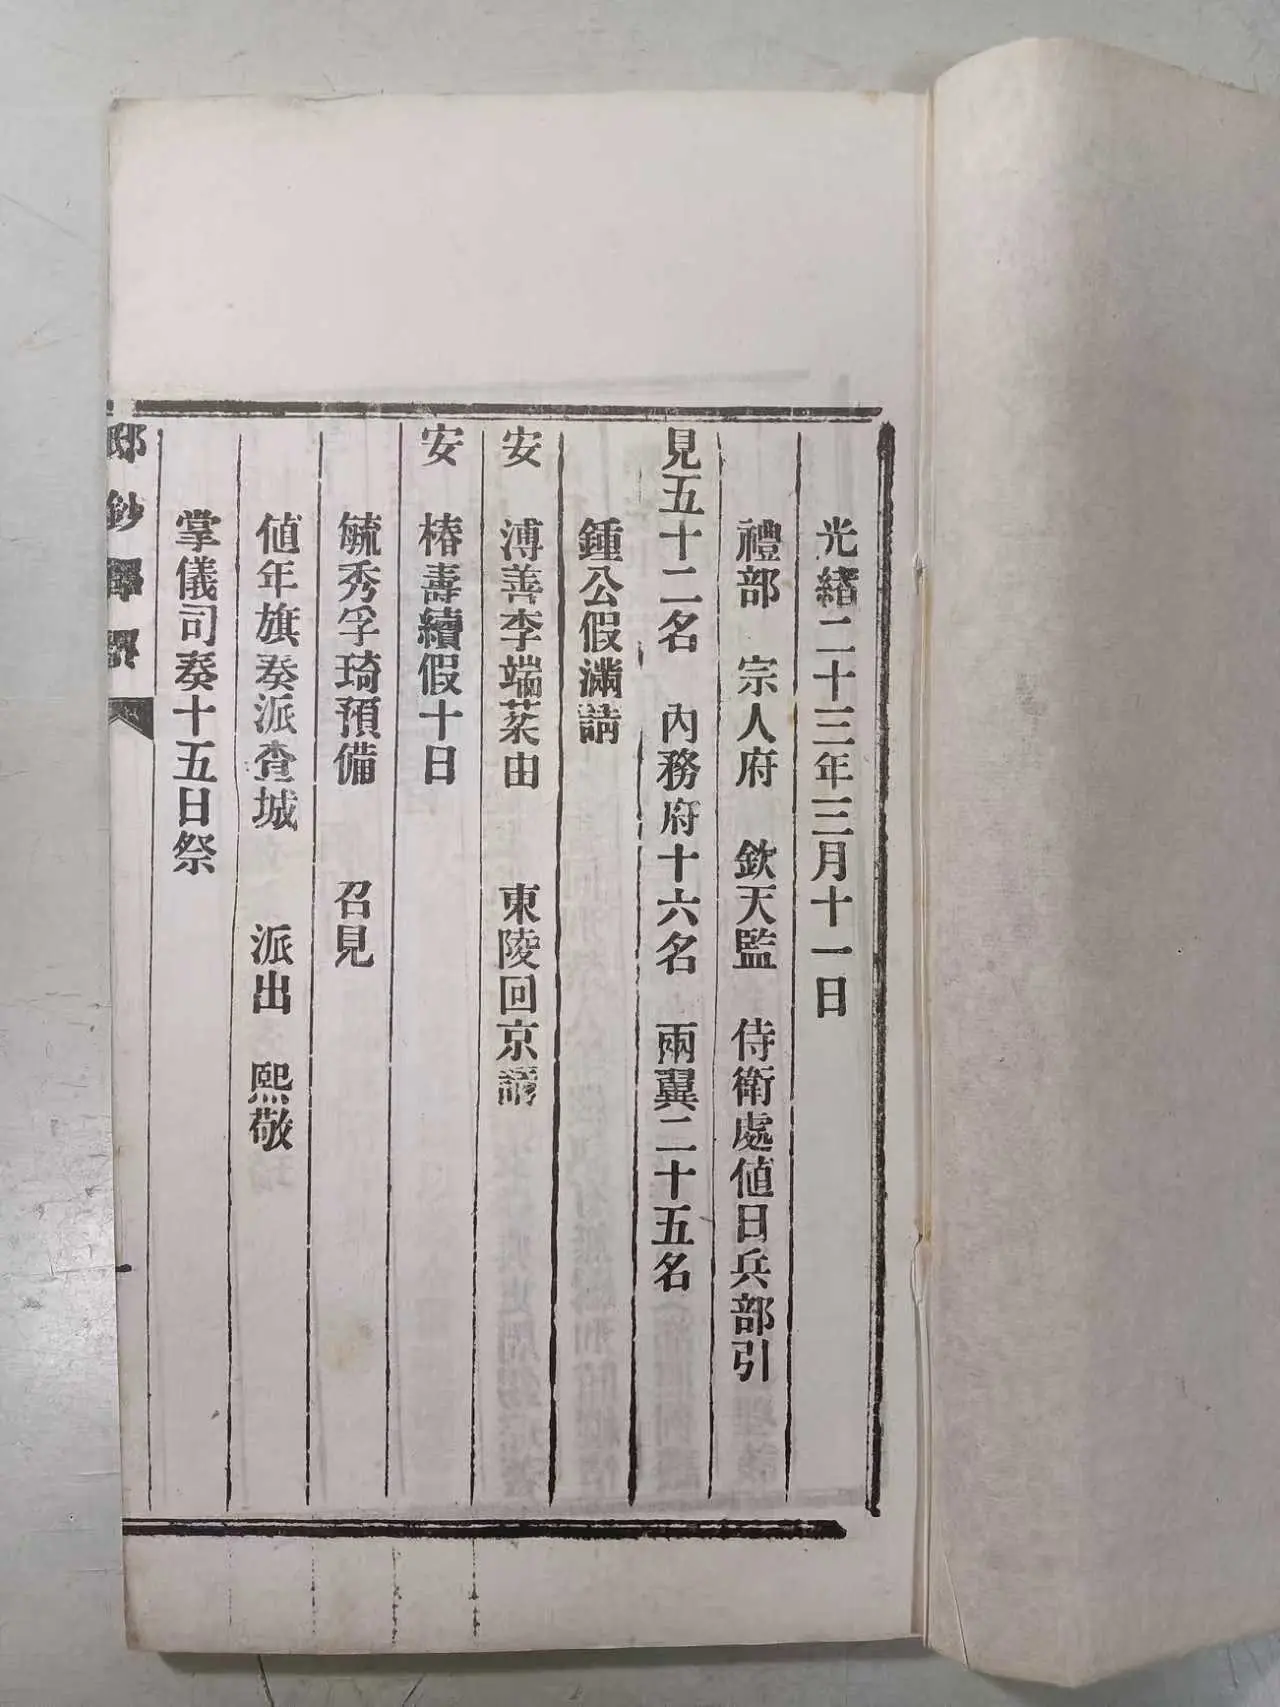 光緒二十三年三月十一日
禮部 宗人府 欽天監 侍衛處値日兵部引
見五十二名 內務府十六名 兩翼二十五名
鍾公假滿請
安 溥善李端棻由 東陵回京請
安 椿壽續假十日
毓秀孚琦預備 召見
値年旗奏派查城 派出 熙敬
掌儀司奏十五日祭
邸鈔
一